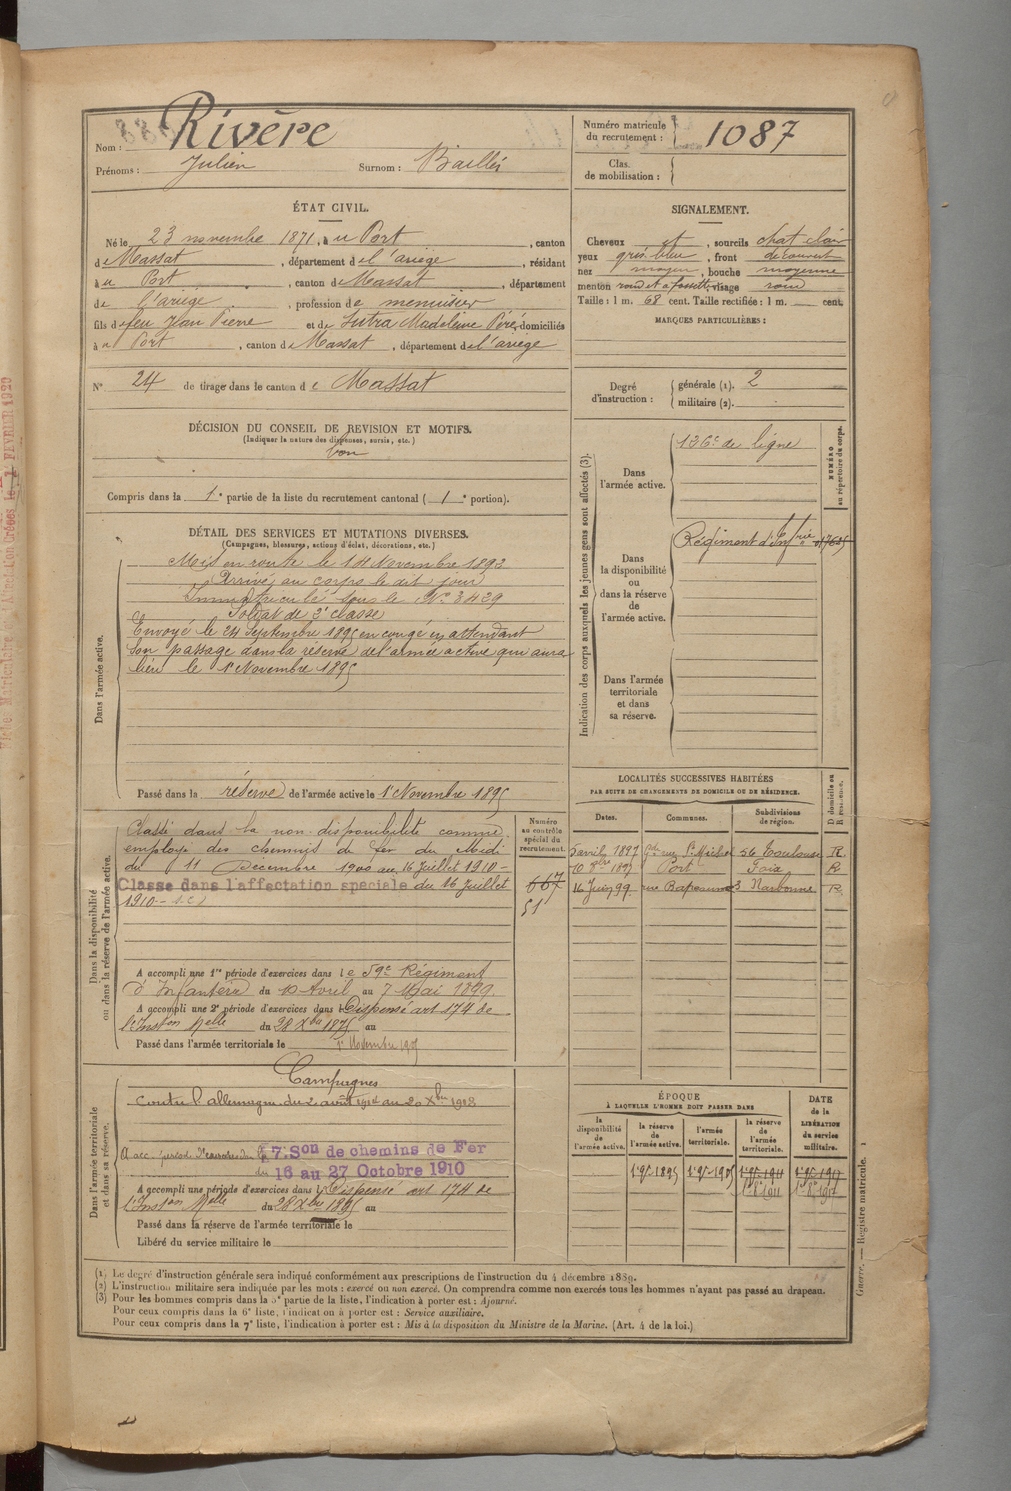 Nom : Rivère
Prénoms : Julien Surnom : Baillés
Numéro matricule du recrutement : 1087
Clas. de mobilisation :
ÉTAT CIVIL.
Né le 23 novembre 1871, à u Port, canton
de Massat, département de l'ariège, résidant
à u Port, canton de Massat, département
de l'ariège, profession de menuisier
fils de feu Jean Pierre et de Sutra Madeleine Péré, domiciliés
à u Port, canton de Massat, département de l'ariège
N° 24 de tirage dans le canton de Massat
SIGNALEMENT.
Cheveux et, sourcils chat clair
yeux gris bleu, front découvert
nez moyen, bouche moyenne
menton rond et à fossette, visage rond
Taille : 1 m. 68 cent. Taille rectifiée : 1 m. cent.
MARQUES PARTICULIÈRES :
Degré d'instruction : générale (1). 2
militaire (2).
DÉCISION DU CONSEIL DE REVISION ET MOTIFS.
(Indiquer la nature des dispenses, sursis, etc.)
bon
Compris dans la 1e partie de la liste du recrutement cantonal (1e portion).
DÉTAIL DES SERVICES ET MUTATIONS DIVERSES.
(Campagnes, blessures, actions d'éclat, décorations, etc.)
Dans l'armée active.
Mis en route le 14 Novembre 1892
Arrivé au corps le dit jour
Immatriculé sous le N° 3429
Soldat de 2e classe
Envoyé le 24 Septembre 1895 en congé en attendant
son passage dans la réserve de l'armée active qui aura
lieu le 1er Novembre 1895
Passé dans la réserve de l'armée active le 1er Novembre 1895
Indication des corps auxquels les jeunes gens sont affectés (3).
NUMÉRO au répertoire du corps.
Dans l'armée active.
126e de ligne
Dans la disponibilité ou dans la réserve de l'armée active.
Régiment d'Infrie
Dans l'armée territoriale et dans sa réserve.
Dans la disponibilité ou dans la réserve de l'armée active.
Numéro au contrôle spécial du recrutement.
Classé dans la non-disponibilité comme
employé des chemins de fer du Midi
du 11 Décembre 1900 au 16 Juillet 1910 -
Classé dans l'affectation spéciale du 16 Juillet
1910 -
667
51
A accompli une 1re période d'exercices dans le 59e Régiment
d'Infanterie du 10 Avril au 7 Mai 1899.
A accompli une 2e période d'exercices dans l Dispensé art 174 de
l'Inston Melle du 28 Xbre 1895 au
Passé dans l'armée territoriale le 1er Novembre 1905
LOCALITÉS SUCCESSIVES HABITÉES
PAR SUITE DE CHANGEMENTS DE DOMICILE OU DE RÉSIDENCE.
Dates. Communes. Subdivisions de région. D domicile ou R résidence.
5 avril 1897 gde rue St Michel 56 Toulouse R.
10 8bre 1897 Port Foix R
16 Juin 99 rue Bapeaume 3 Narbonne R.
Dans l'armée territoriale et dans sa réserve.
Campagnes
contre l'allemagne du 2 août 1914 au 20 Xbre 1918
A acc. période d'exercices dans la 7e Son de chemins de Fer
du 16 au 27 Octobre 1910
A accompli une période d'exercices dans l Dispensé art 174 de
l'Inston Melle du 28 Xbre 1895 au
Passé dans la réserve de l'armée territoriale le
Libéré du service militaire le
ÉPOQUE
À LAQUELLE L'HOMME DOIT PASSER DANS
la disponibilité de l'armée active.
la réserve de l'armée active.
l'armée territoriale.
la réserve de l'armée territoriale.
DATE de la LIBÉRATION du service militaire.
1er 9bre 1895 1er 9bre 1905 1er 9bre 1911 1er 9bre 1917
1er 8bre 1911 1er 8bre 1917
(1) Le degré d'instruction générale sera indiqué conformément aux prescriptions de l'instruction du 4 décembre 1889.
(2) L'instruction militaire sera indiquée par les mots : exercé ou non exercé. On comprendra comme non exercés tous les hommes n'ayant pas passé au drapeau.
(3) Pour les hommes compris dans la 5e partie de la liste, l'indication à porter est : Ajourné.
Pour ceux compris dans la 6e liste, l'indication à porter est : Service auxiliaire.
Pour ceux compris dans la 7e liste, l'indication à porter est : Mis à la disposition du Ministre de la Marine. (Art. 4 de la loi.)
Guerre. — Registre matricule.